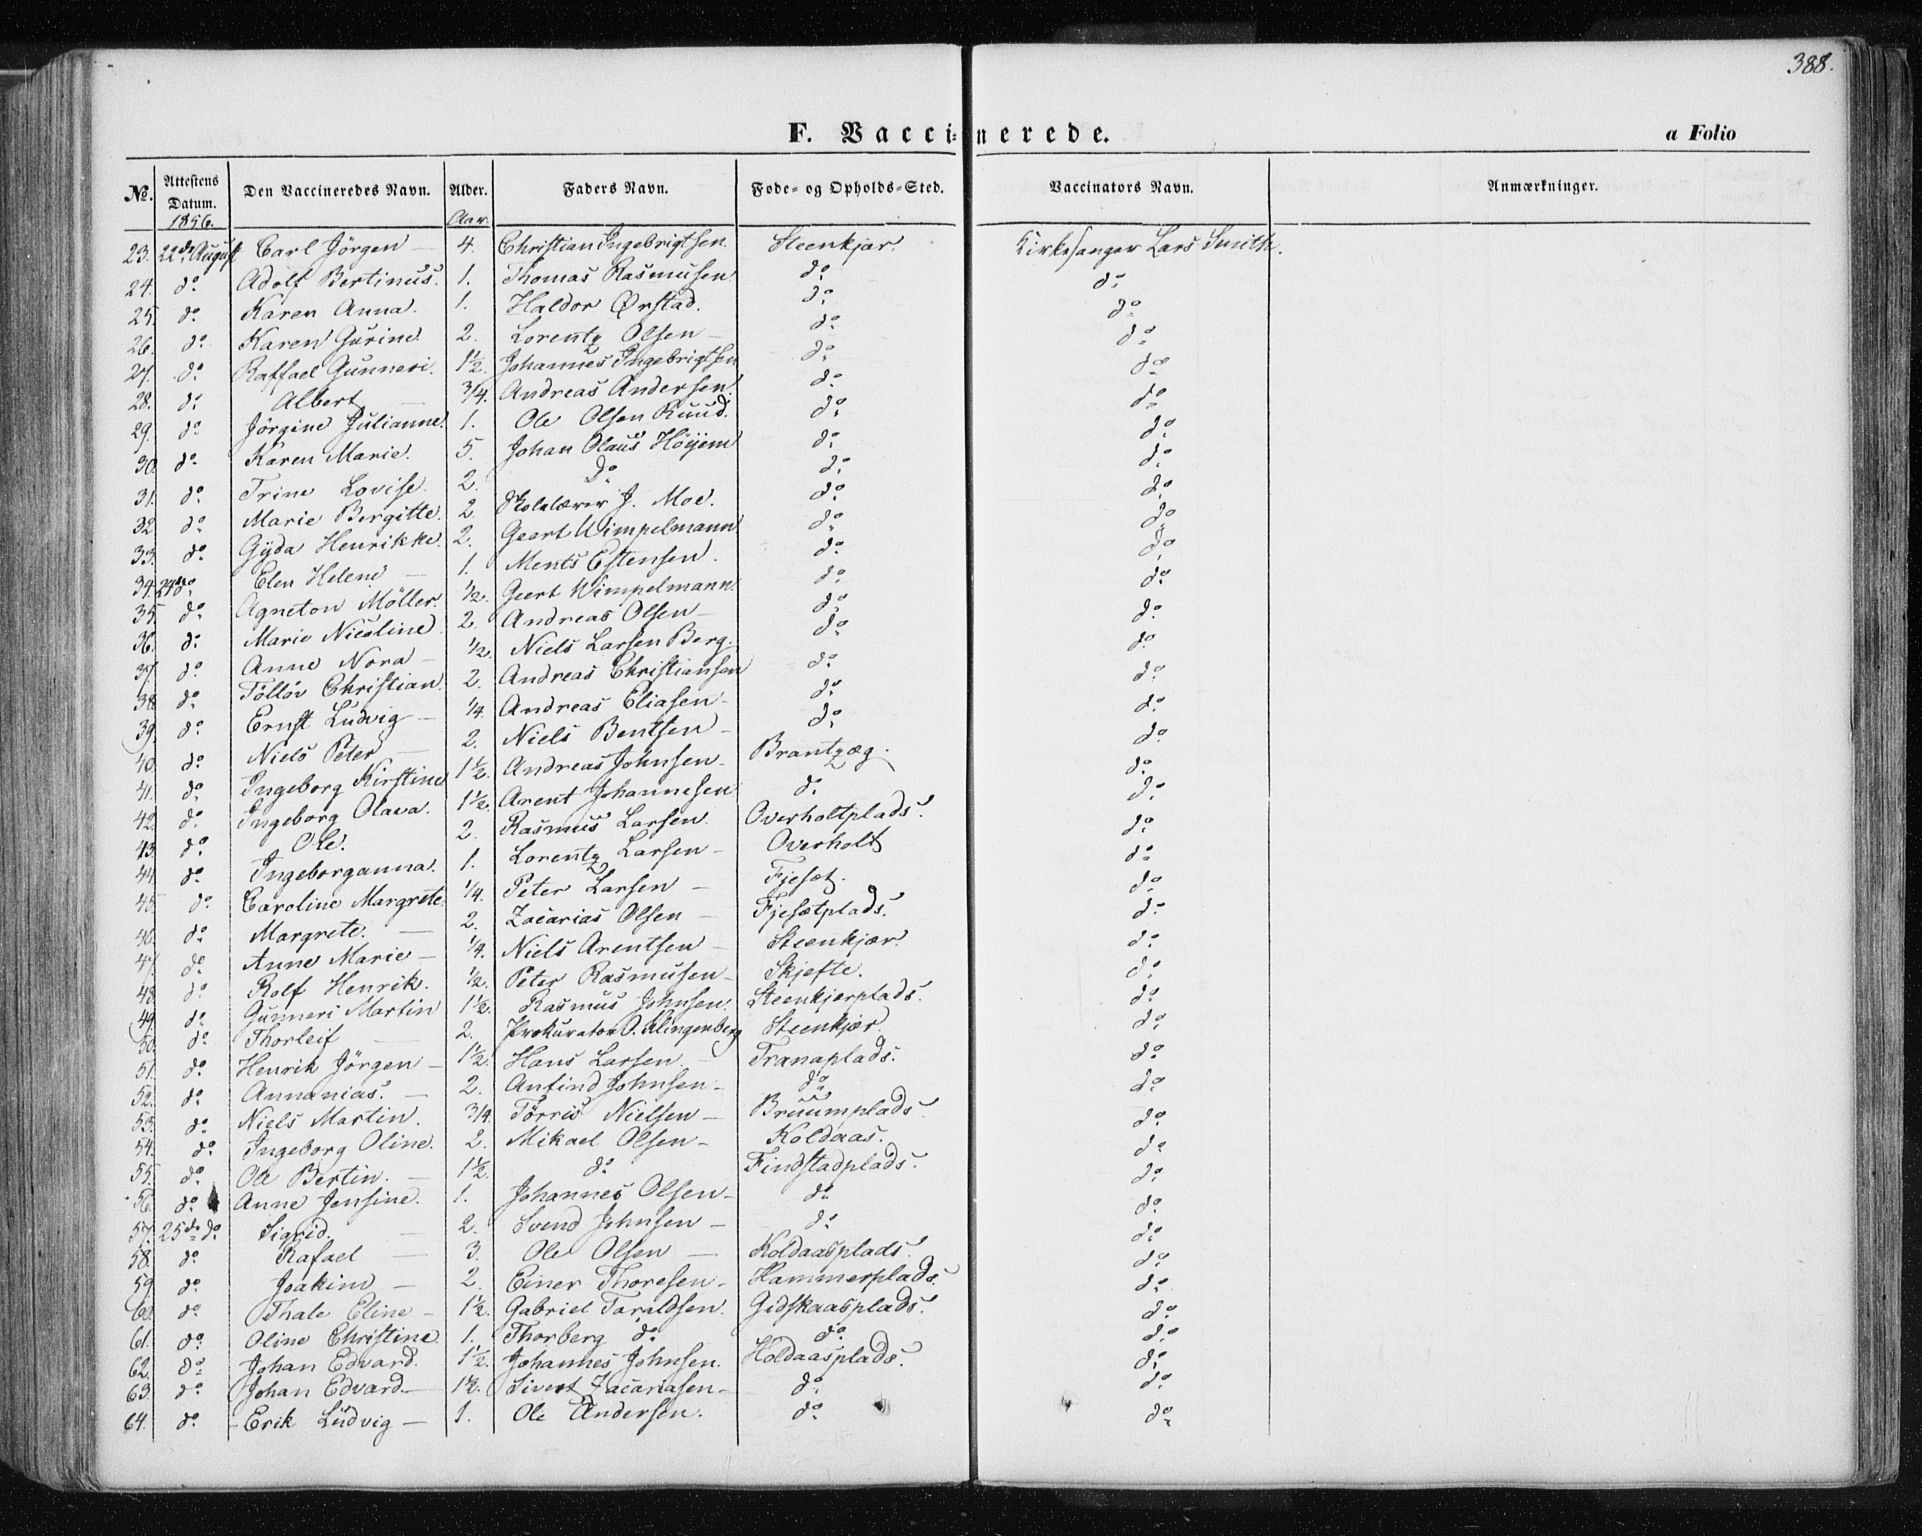 388.
F. Vaccinerede. a Folio
No. Attestens Datum. 1856. Den Vaccineredes Navn. Alder. Aar. Faders Navn. Føde- og Opholds-Sted. Vaccinators Navn. Anmærkninger.
23. 22de August Carl Jörgen — 4. Christian Ingebrigtsen Steenkjær Kirkesanger Lars Smith.
24. do Adolf Bertinus. 1. Thomas Rasmusen do do
25. do Karen Anna. 1. Haldor Ørstad. do do
26. do Karen Gurine 2. Lorentz Olsen — do do
27. do Raffael Gunneri. 1½. Johannes Ingebrigtsen do do
28. do Albert — 3/4. Andreas Andersen do do
29. do Jörgine Julianne 1. Ole Olsen Ruud. do do
30. do Karen Marie. 5. Johan Olaus Höyem do do
31. do Trine Lovise. 2. do do do
32. do Marie Bergitte. 2. Skolelærer J. Moe. do do
33. do Gyda Henrikke. 2. Geert Wimpelmann do do
34. 24de do Elen Helene — 1. Ments Estensen. do do
35. do Agneton Möller. ½. Geert Wimpelmann. do do
36. do Marie Nicoline 2. Andreas Olsen — do do
37. do Anne Nora — ½. Niels Larsen Berg. do do
38. do Töllöv Christian. 2. Andreas Christiansen do do
39. do Ernst Ludvig — ¼. Andreas Eliasen — do do
40. do Niels Peter — 2. Niels Bentsen — do do
41. do Ingeborg Kirstine 1½. Andreas Johnsen. Brantzæg. do
42. do Ingeborg Olava. 1½. Arent Johannesen do do
43. do Ole. 2. Rasmus Larsen. Overholtplads. do
44. do Ingeborganna. 1. Lorentz Larsen — Overholt do
45. do Caroline Margrete ¼. Peter Larsen — Fjeset. do
46. do Margrete. — 2. Zacarias Olsen — Fjesetplads. do
47. do Anne Marie — ¼. Niels Arentsen — Steenkjær. do
48. do Rolf Henrik. ½. Peter Rasmusen — Skjefte. do
49. do Gunneri Martin 1½. Rasmus Johnsen. Steenkjerplads. do
50. do Thorleif — 2. Prokurator O. Klingenberg Steenkjær. do
51. do Henrik Jörgen — 1½. Hans Larsen — Tranaplads. do
52. do Annanias. — 2. Anfind Johnsen — do do
53. do Niels Martin. 3/4. Törris Nielsen — Bruumplads. do
54. do Ingeborg Oline. 2. Mikael Olsen — Koldaas. do
55. do Ole Bertin. — 1½. do Findstadplads. do
56. do Anne Jensine. 1. Johannes Olsen — do do
57. 25de do Sigrid. — 2. Svend Johnsen — do do
58. do Rafael — 3. Ole Olsen — Koldaasplads. do
59. do Joakim — 2. Einer Thoresen — Hammerplads. do
60. do Thale Eline — 1½. Gabriel Taraldsen. Gidskaasplads. do
61. do Oline Christine 1. Thorberg do do do
62. do Johan Edvard. 1½. Johannes Johnsen. Holdaasplads. do
63. do Johan Edvard — 1½. Sivert Zacariasen — do do
64. do Erik Ludvig — 1. Ole Andersen. do do